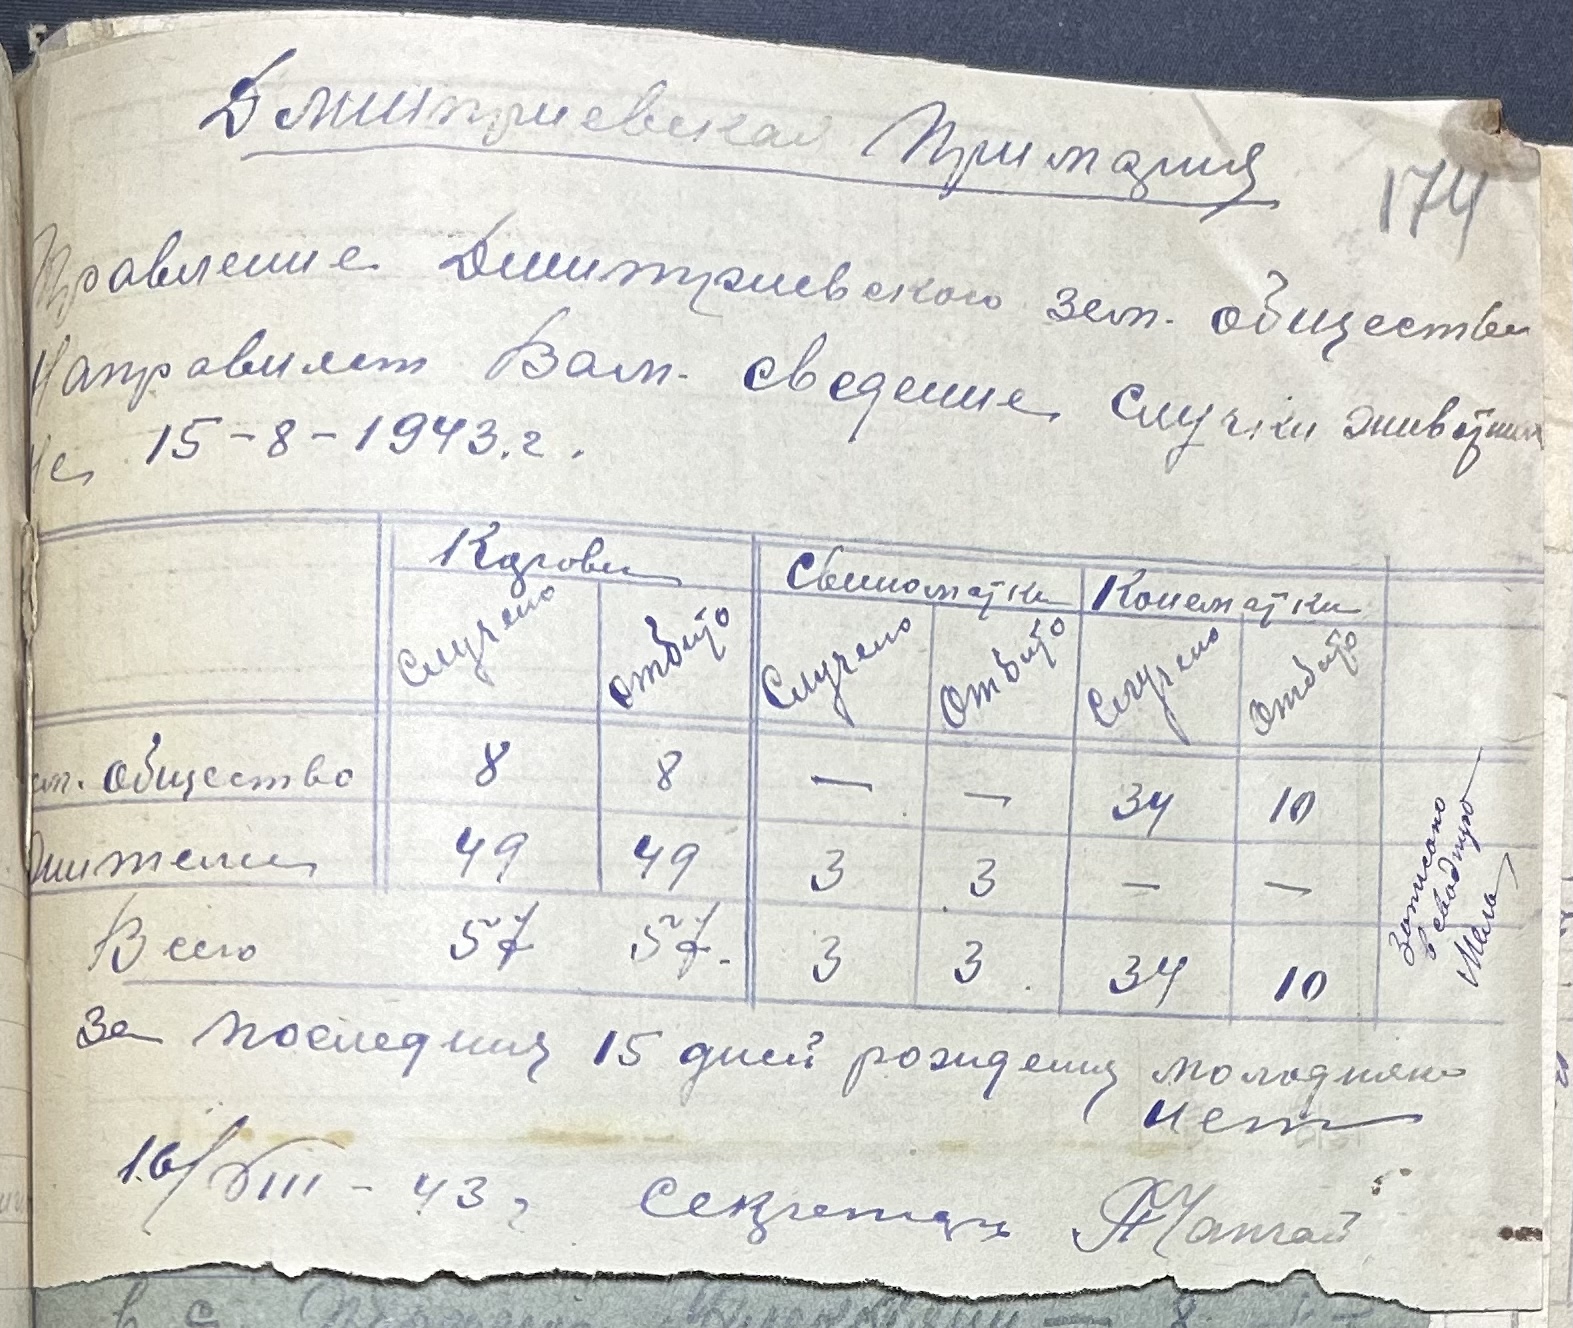 Дмитриевская Примария
174
Правление Дмитриевского зем. общества
Направляет Вам. сведение случки животных
На 15-8-1943.г.
Коровы Свиноматки Конематки
Случено отбито Случено Отбито Случено отбито
зем. общество 8 8 — — 34 10
жители 49 49 3 3 — —
Всего 57 57. 3 3. 34 10
Записано
в сводную
За последния 15 дней рождения молодняка
нет
16/VIII-43 г Секретарь